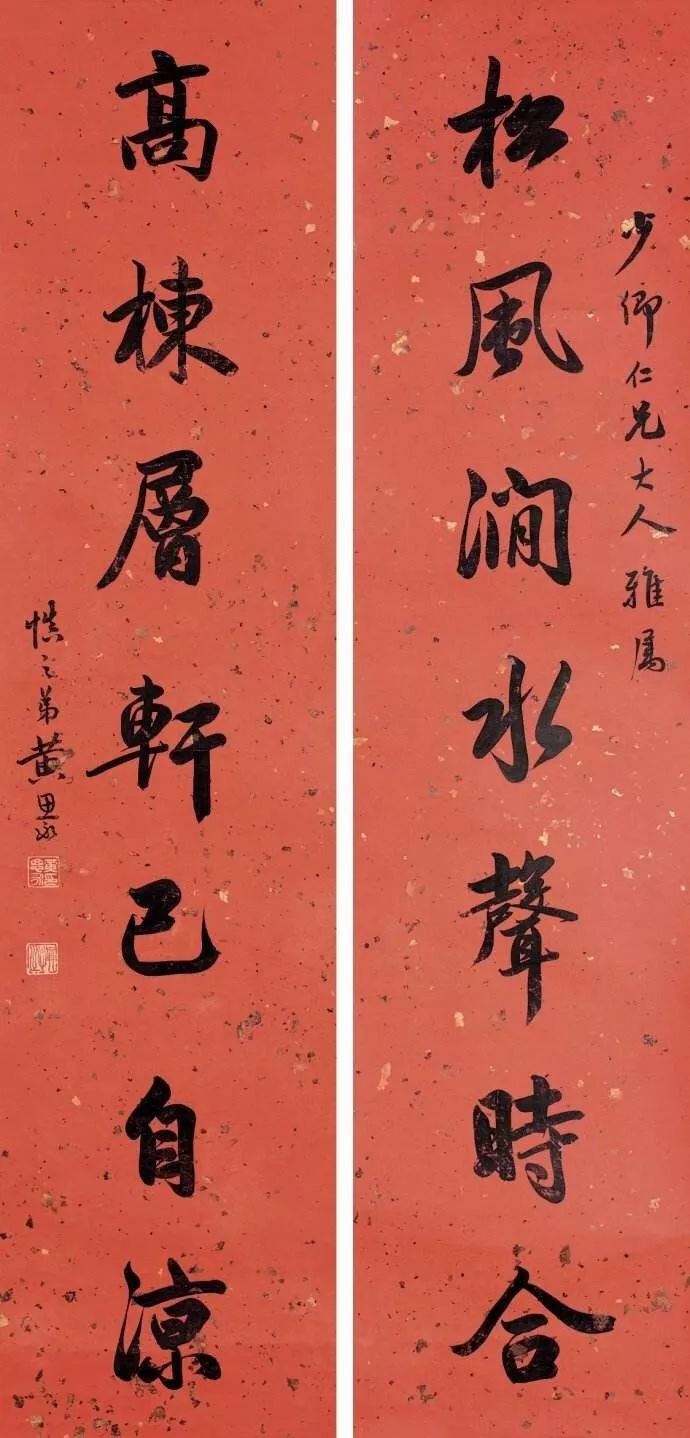 少卿仁兄大人雅属
松風澗水聲時合
高棟層軒已自凉
慎之弟黄思永